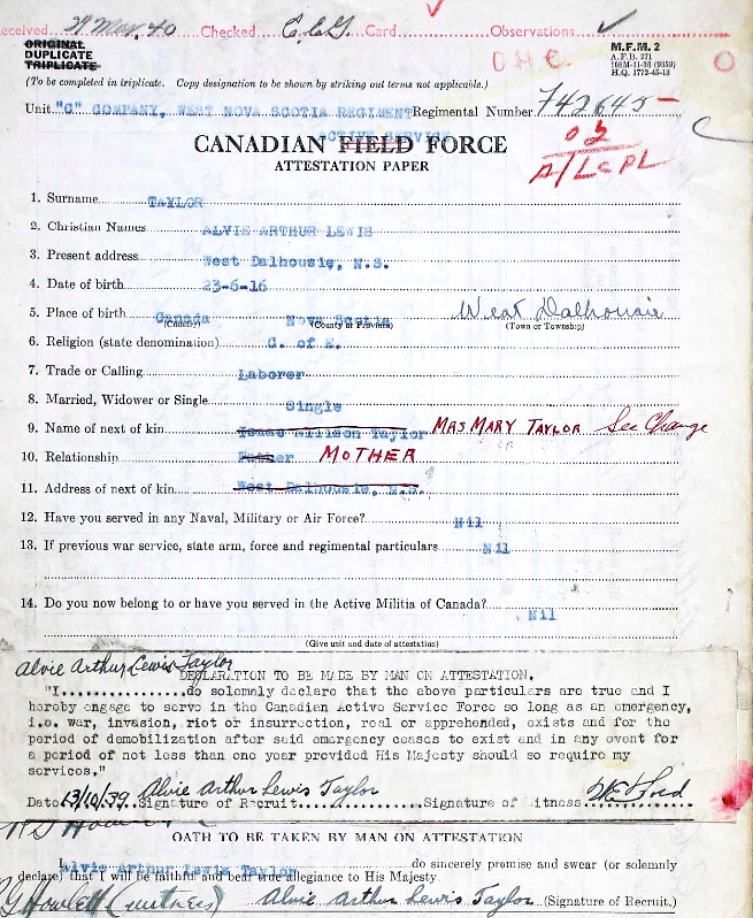 Received 29 May, 40 Checked C.L.G. Card Observations
ORIGINAL
DUPLICATE
TRIPLICATE
M.F.M. 2
A.F.B. 271
H.Q. 1772-45-13
O.H.C.
(To be completed in triplicate. Copy designation to be shown by striking out terms not applicable.)
Unit "C" COMPANY, WEST NOVA SCOTIA REGIMENT Regimental Number 742645
ACTIVE SERVICE
CANADIAN FIELD FORCE
ATTESTATION PAPER
A/LCPL
1. Surname TAYLOR
2. Christian Names ALVIE ARTHUR LEWIS
3. Present address West Dalhousie, N.S.
4. Date of birth 23-6-16
5. Place of birth Canada Nova Scotia West Dalhousie
(Country) (County or Province) (Town or Township)
6. Religion (state denomination) C. of E.
7. Trade or Calling Laborer
8. Married, Widower or Single Single
9. Name of next of kin Isaac Allison Taylor MRS MARY TAYLOR See Change
10. Relationship Father MOTHER
11. Address of next of kin West Dalhousie, N.S.
12. Have you served in any Naval, Military or Air Force? Nil
13. If previous war service, state arm, force and regimental particulars Nil
14. Do you now belong to or have you served in the Active Militia of Canada? Nil
(Give unit and date of attestation)
Alvie Arthur Lewis Taylor
DECLARATION TO BE MADE BY MAN ON ATTESTATION.
"I...............do solemnly declare that the above particulars are true and I
hereby engage to serve in the Canadian Active Service Force so long as an emergency,
i.e. war, invasion, riot or insurrection, real or apprehended, exists and for the
period of demobilization after said emergency ceases to exist and in any event for
a period of not less than one year provided His Majesty should so require my
services."
Date 13/10/39 Signature of Recruit Alvie Arthur Lewis Taylor Signature of Witness
OATH TO BE TAKEN BY MAN ON ATTESTATION
I, Alvie Arthur Lewis Taylor do sincerely promise and swear (or solemnly
declare) that I will be faithful and bear true allegiance to His Majesty.
Howlett (witness) Alvie Arthur Lewis Taylor (Signature of Recruit.)